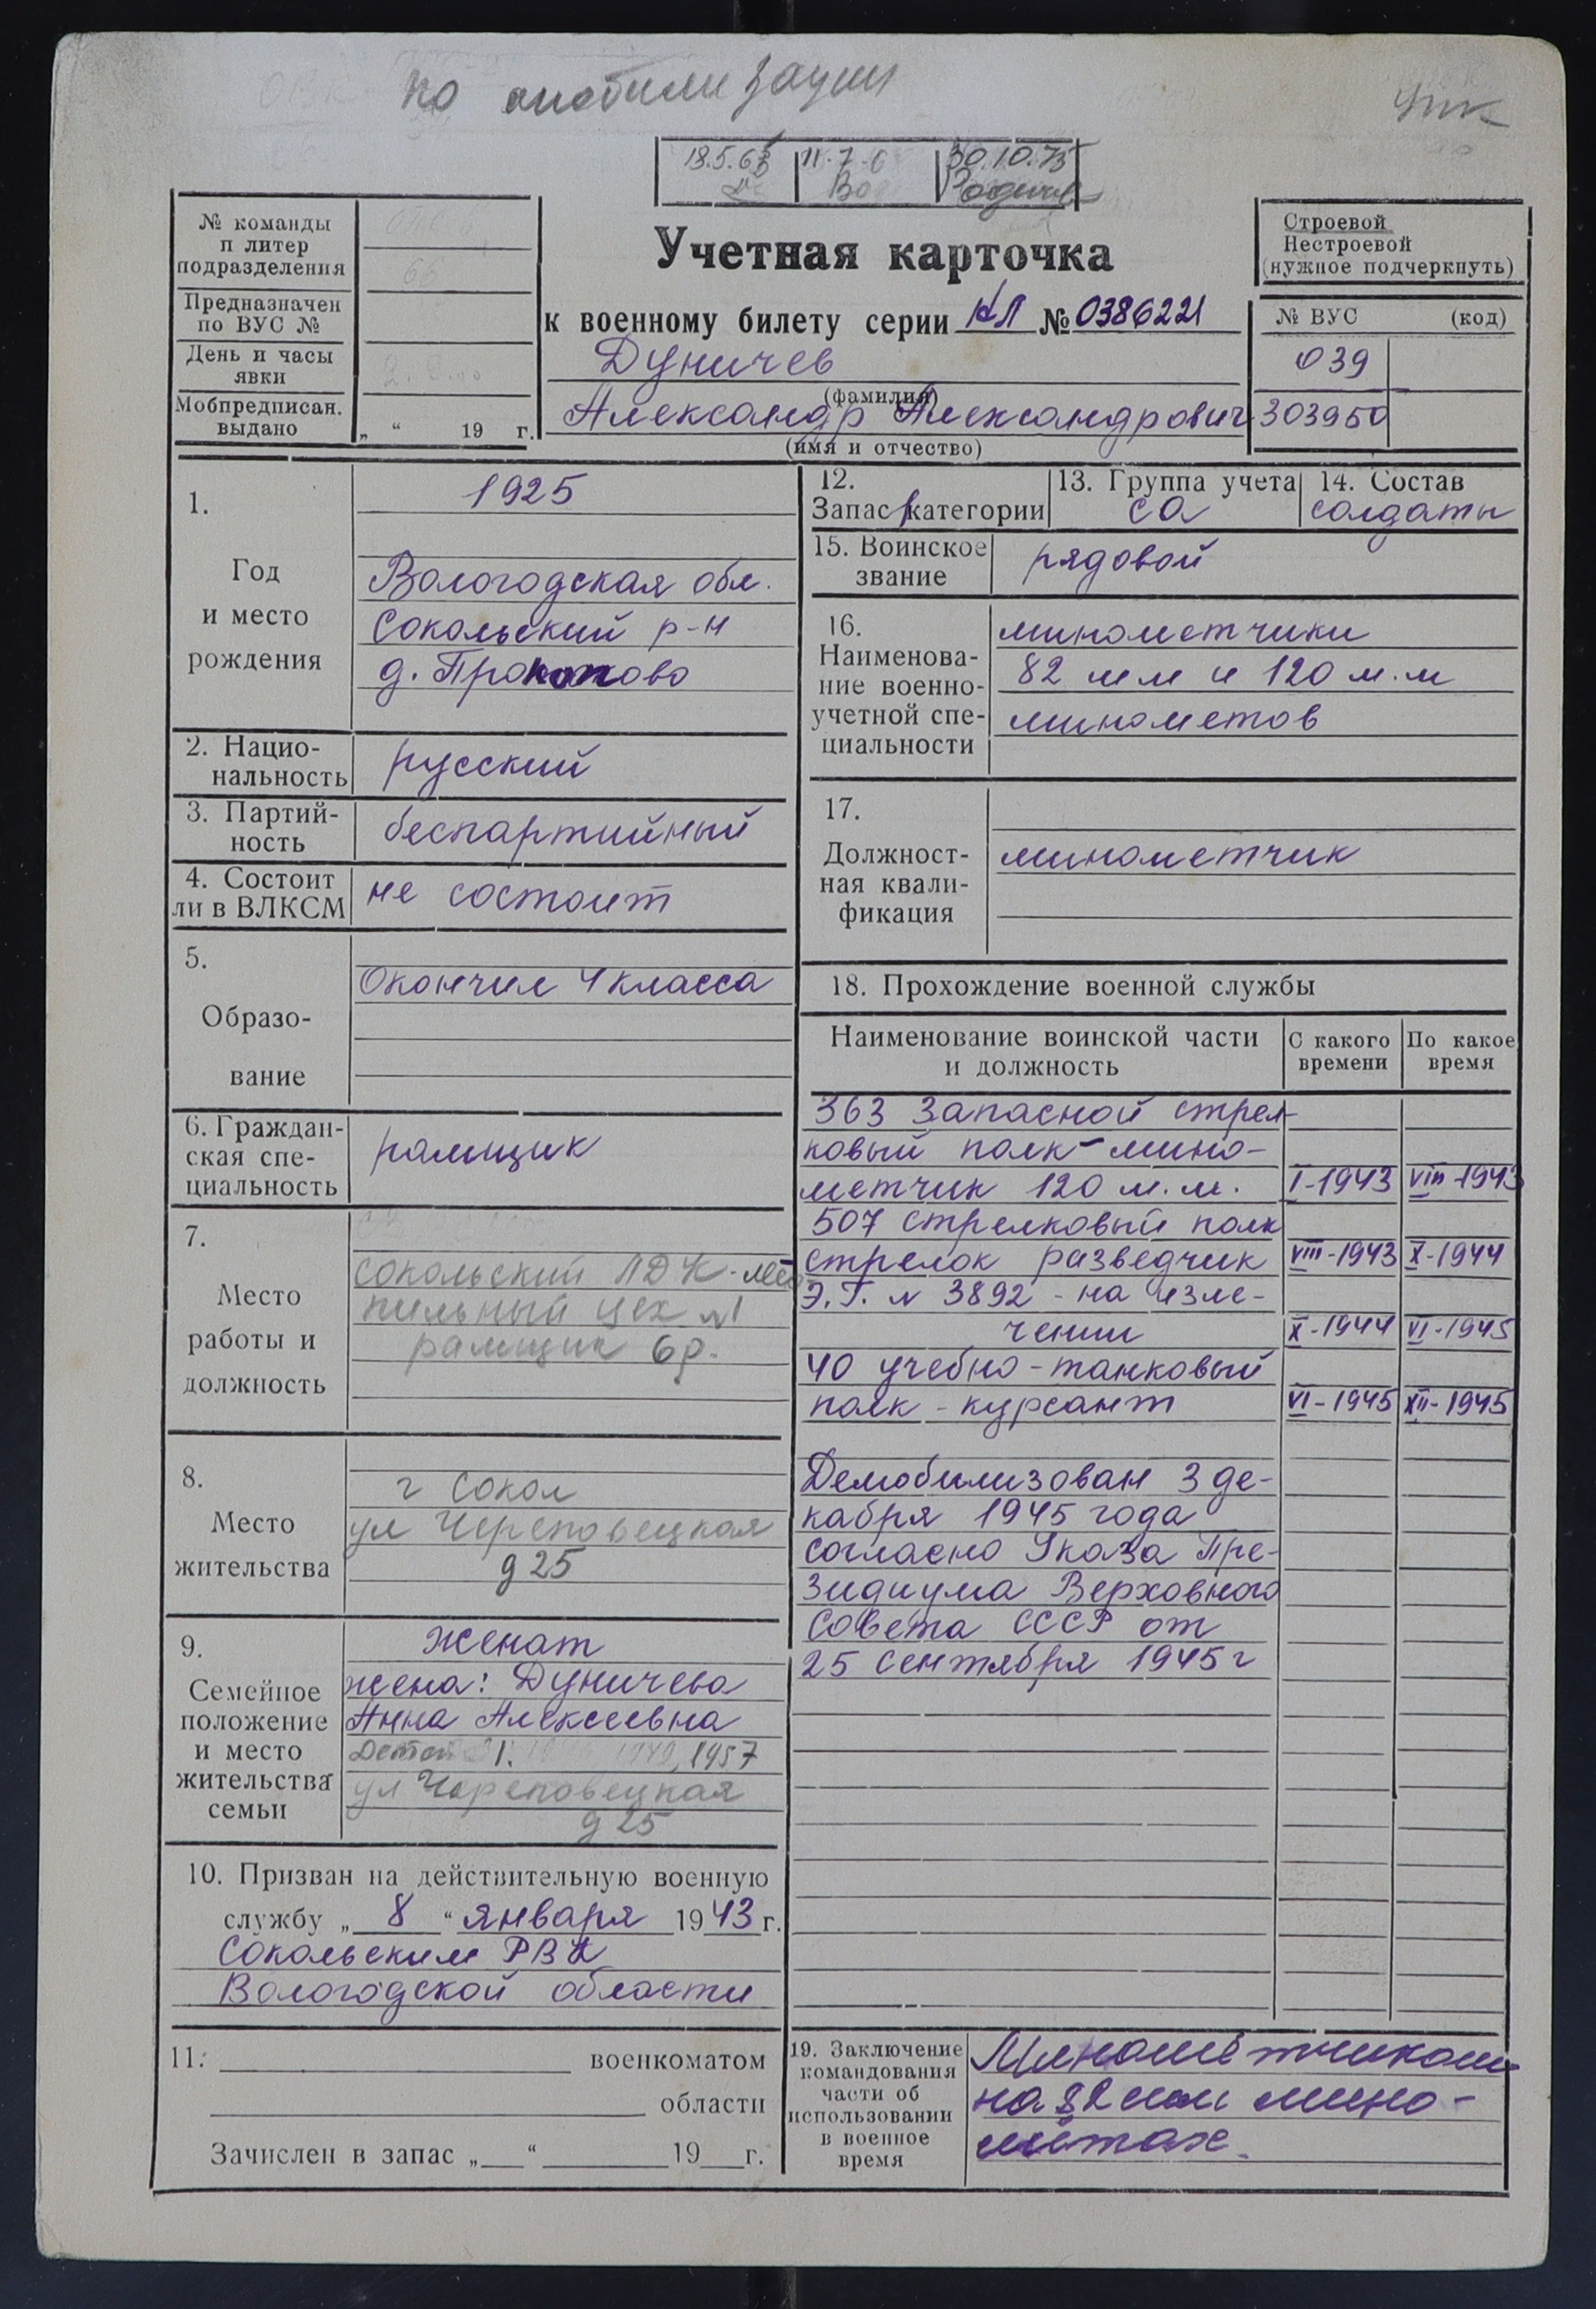 по мобилизации
УПК
18.5.63 11.7.6 30.10.75
№ команды
п литер
подразделения
Предназначен
по ВУС №
День и часы
явки
Мобпредписан.
выдано „ “ 19 г.
Учетная карточка
к военному билету серии КЛ № 0386221
Дуничев
(фамилия)
Александр Александрович
(имя и отчество)
Строевой
Нестроевой
(нужное подчеркнуть)
№ ВУС (код)
039
303950
1.
Год
и место
рождения
1925
Вологодская обл.
Сокольский р-н
д. Прокопово
2. Нацио-
нальность
русский
3. Партий-
ность
беспартийный
4. Состоит
ли в ВЛКСМ
не состоит
5.
Образо-
вание
Окончил 4 класса
6. Граждан-
ская спе-
циальность
рамщик
7.
Место
работы и
должность
Сокольский ЛДК-лесо-
пильный цех №1
рамщик 6р.
8.
Место
жительства
г Сокол
ул Череповецкая
д 25
9.
Семейное
положение
и место
жительства
семьи
женат
жена: Дуничева
Анна Алексеевна
Детей 1. 1949, 1957
ул Череповецкая
д 25
10. Призван на действительную военную
службу „ 8 “ января 1943 г.
Сокольским РВК
Вологодской области
11. военкоматом
области
Зачислен в запас „ “ 19 г.
12.
Запас 1 категории
13. Группа учета
СА
14. Состав
солдаты
15. Воинское
звание
рядовой
16.
Наименова-
ние военно-
учетной спе-
циальности
минометчики
82 мм и 120 м.м
минометов
17.
Должност-
ная квали-
фикация
минометчик
18. Прохождение военной службы
Наименование воинской части
и должность
С какого
времени
По какое
время
363 запасной стрел-
ковый полк - мино-
метчик 120 м.м. I-1943 VIII-1943
507 стрелковый полк
стрелок разведчик VIII-1943 X-1944
Э.Г. № 3892 - на изле-
чении X-1944 VI-1945
40 учебно-танковый
полк - курсант VI-1945 XII-1945
Демобилизован 3 де-
кабря 1945 года
согласно Указа Пре-
зидиума Верховного
Совета СССР от
25 сентября 1945 г
19. Заключение
командования
части об
использовании
в военное
время
Минометчиком
на 82 мм мино-
метах.